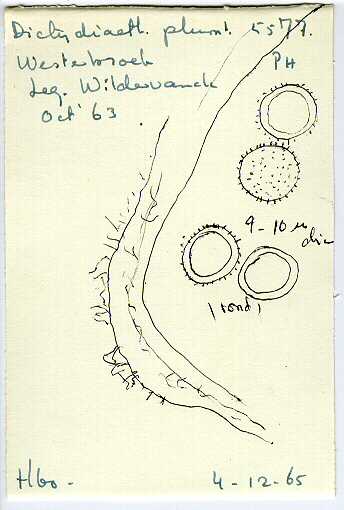 Dichydiaeth. plumb. 5577.
Westerbroek PH
Leg. Wildervanck
Oct '63.
9-10 µ
dia
(rond)
Hbo - 4-12-65